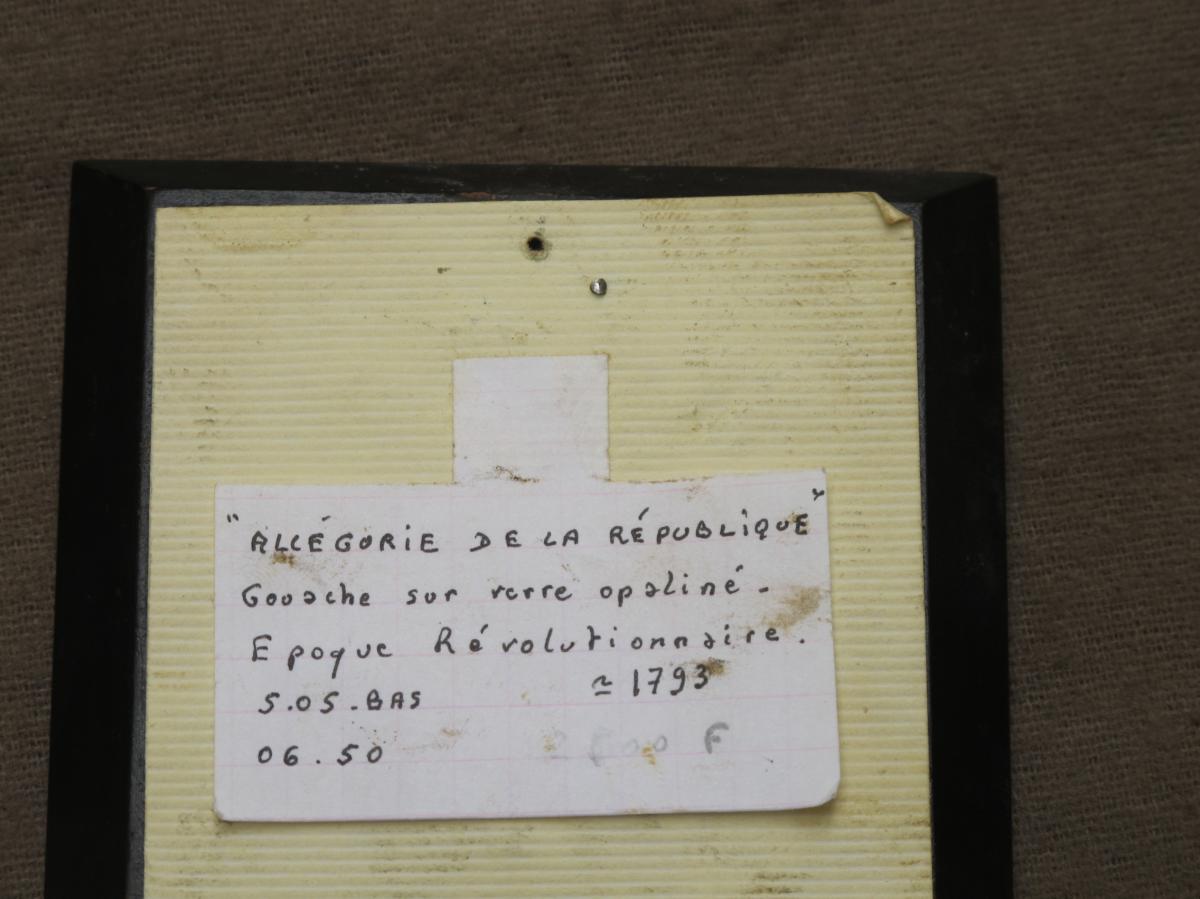 "ALLÉGORIE DE LA RÉPUBLIQUE"
Gouache sur verre opaliné -
Epoque Révolutionnaire.
5.05.BAS ≃ 1793
06.50 F